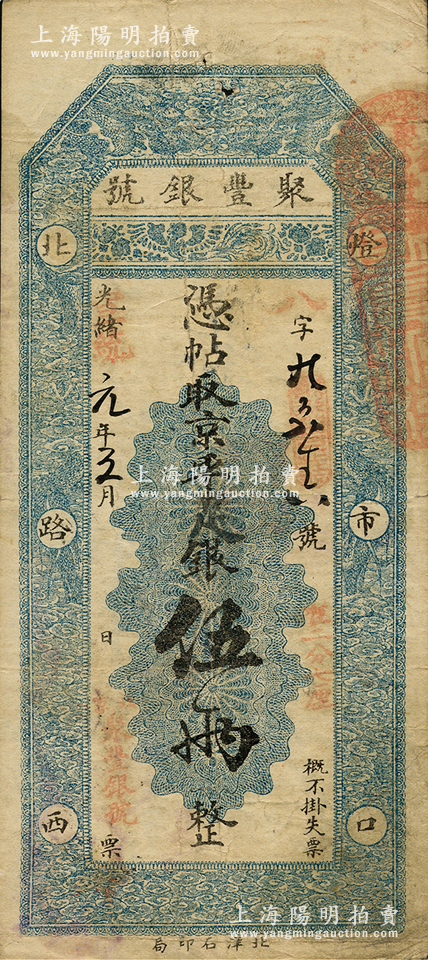 上海陽明拍賣
www.yangmingauction.com
聚豐銀號
燈市口
北路西
字 號
憑帖取京平足銀伍兩整
光緒 元年 月 日 票
概不掛失票
聚豐銀號
上海陽明拍賣
www.yangmingauction.com
上海陽明拍賣
www.yangmingauction.com
北洋石印局